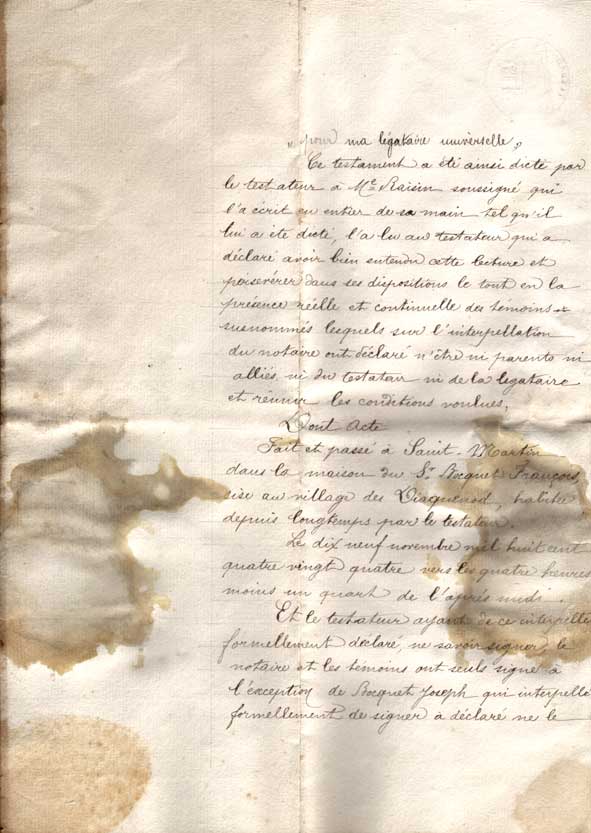 "pour ma légataire universelle"
Ce testament a été ainsi dicté par
le testateur à Me Raisin soussigné qui
l'a écrit en entier de sa main tel qu'il
lui a été dicté, l'a lu au testateur qui a
déclaré avoir bien entendu cette lecture et
persévérer dans ses dispositions le tout en la
présence réelle et continuelle des témoins
susnommés lesquels sur l'interpellation
du notaire ont déclaré n'être ni parents ni
alliés, ni du testateur ni de la légataire
et réunir les conditions voulues,
Dont Acte
Fait et passé à Saint-Martin
dans la maison du Sr Bocquet François,
sise au village des habitée
depuis longtemps par le testateur.
Le dix neuf novembre mil huit cent
quatre vingt quatre vers les quatre heures
moins un quart de l'après midi.
Et le testateur ayant de ce interpellé
formellement déclaré, ne savoir signer, le
notaire et les témoins ont seuls signé à
l'exception de Bocquet Joseph qui interpellé
formellement de signer a déclaré ne le